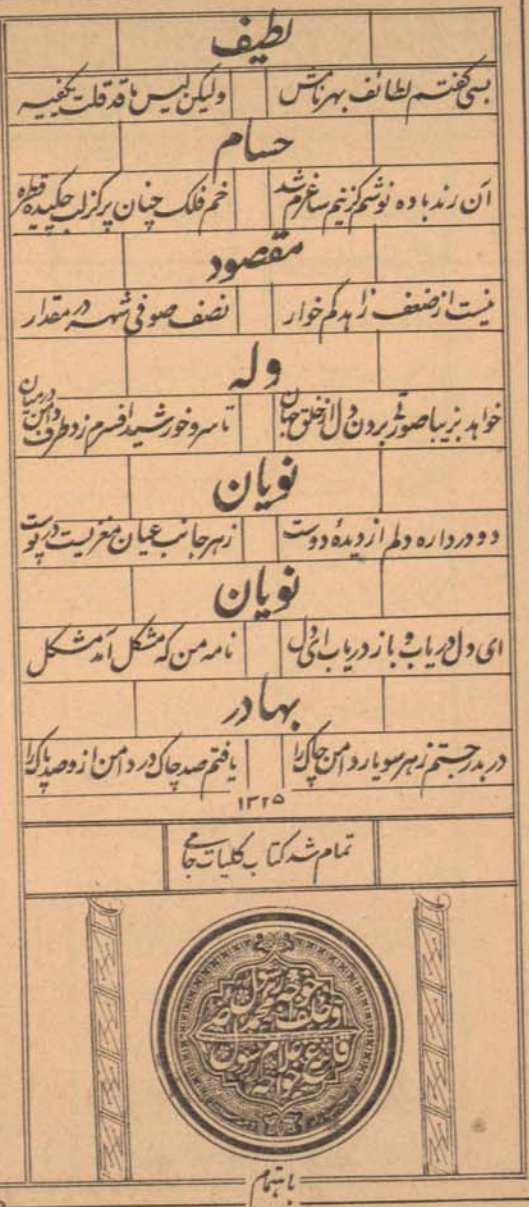 لطیف
بسی گفتم لطائف بهر نامش ولیکن لیس ما قد قلت یکفیه
حسام
آن رند باده نوشم کز نیم ساغرم شد خم فلک چنان پر کز لب چکیده قطره
مقصود
نیست از ضعف زاهد کم خوار نصف صوفی شهر در مقدار
وله
خواهد بزیبا صورتی بردن دل از خلق جهان تا سرو خورشید افسرم زد طرف دامن در میان
نویان
دو در داره دلم از دیدهٔ دوست زهر جانب عیان مغزیست در پوست
نویان
ای دل دریاب و باز دریاب ای دل نامه من که مشکل آمد مشکل
بهادر
در بدر جستم زهر سو یار دامن چاک را یافتم صد چاک در دامن ازو صد پاک را
۱۳۲۵
تمام شد کتاب کلیات جامی
باهتمام